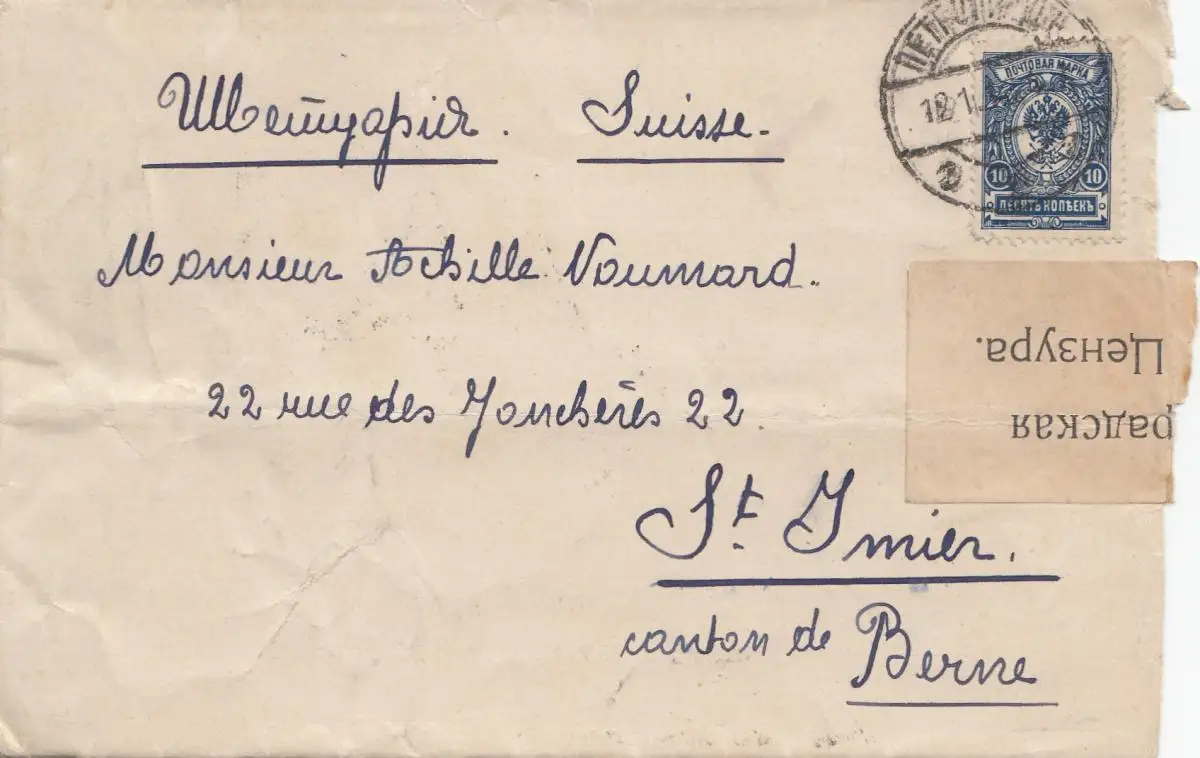 ПЕТРОГРАДЪ
ПОЧТОВАЯ МАРКА
10 10
ДЕСЯТЬ КОПѢЕКЪ
Швейцарія. Suisse.
Monsieur Achille Voumard.
22 rue des Jonchères 22.
St. Imier.
canton de Berne
радская
Цензура.